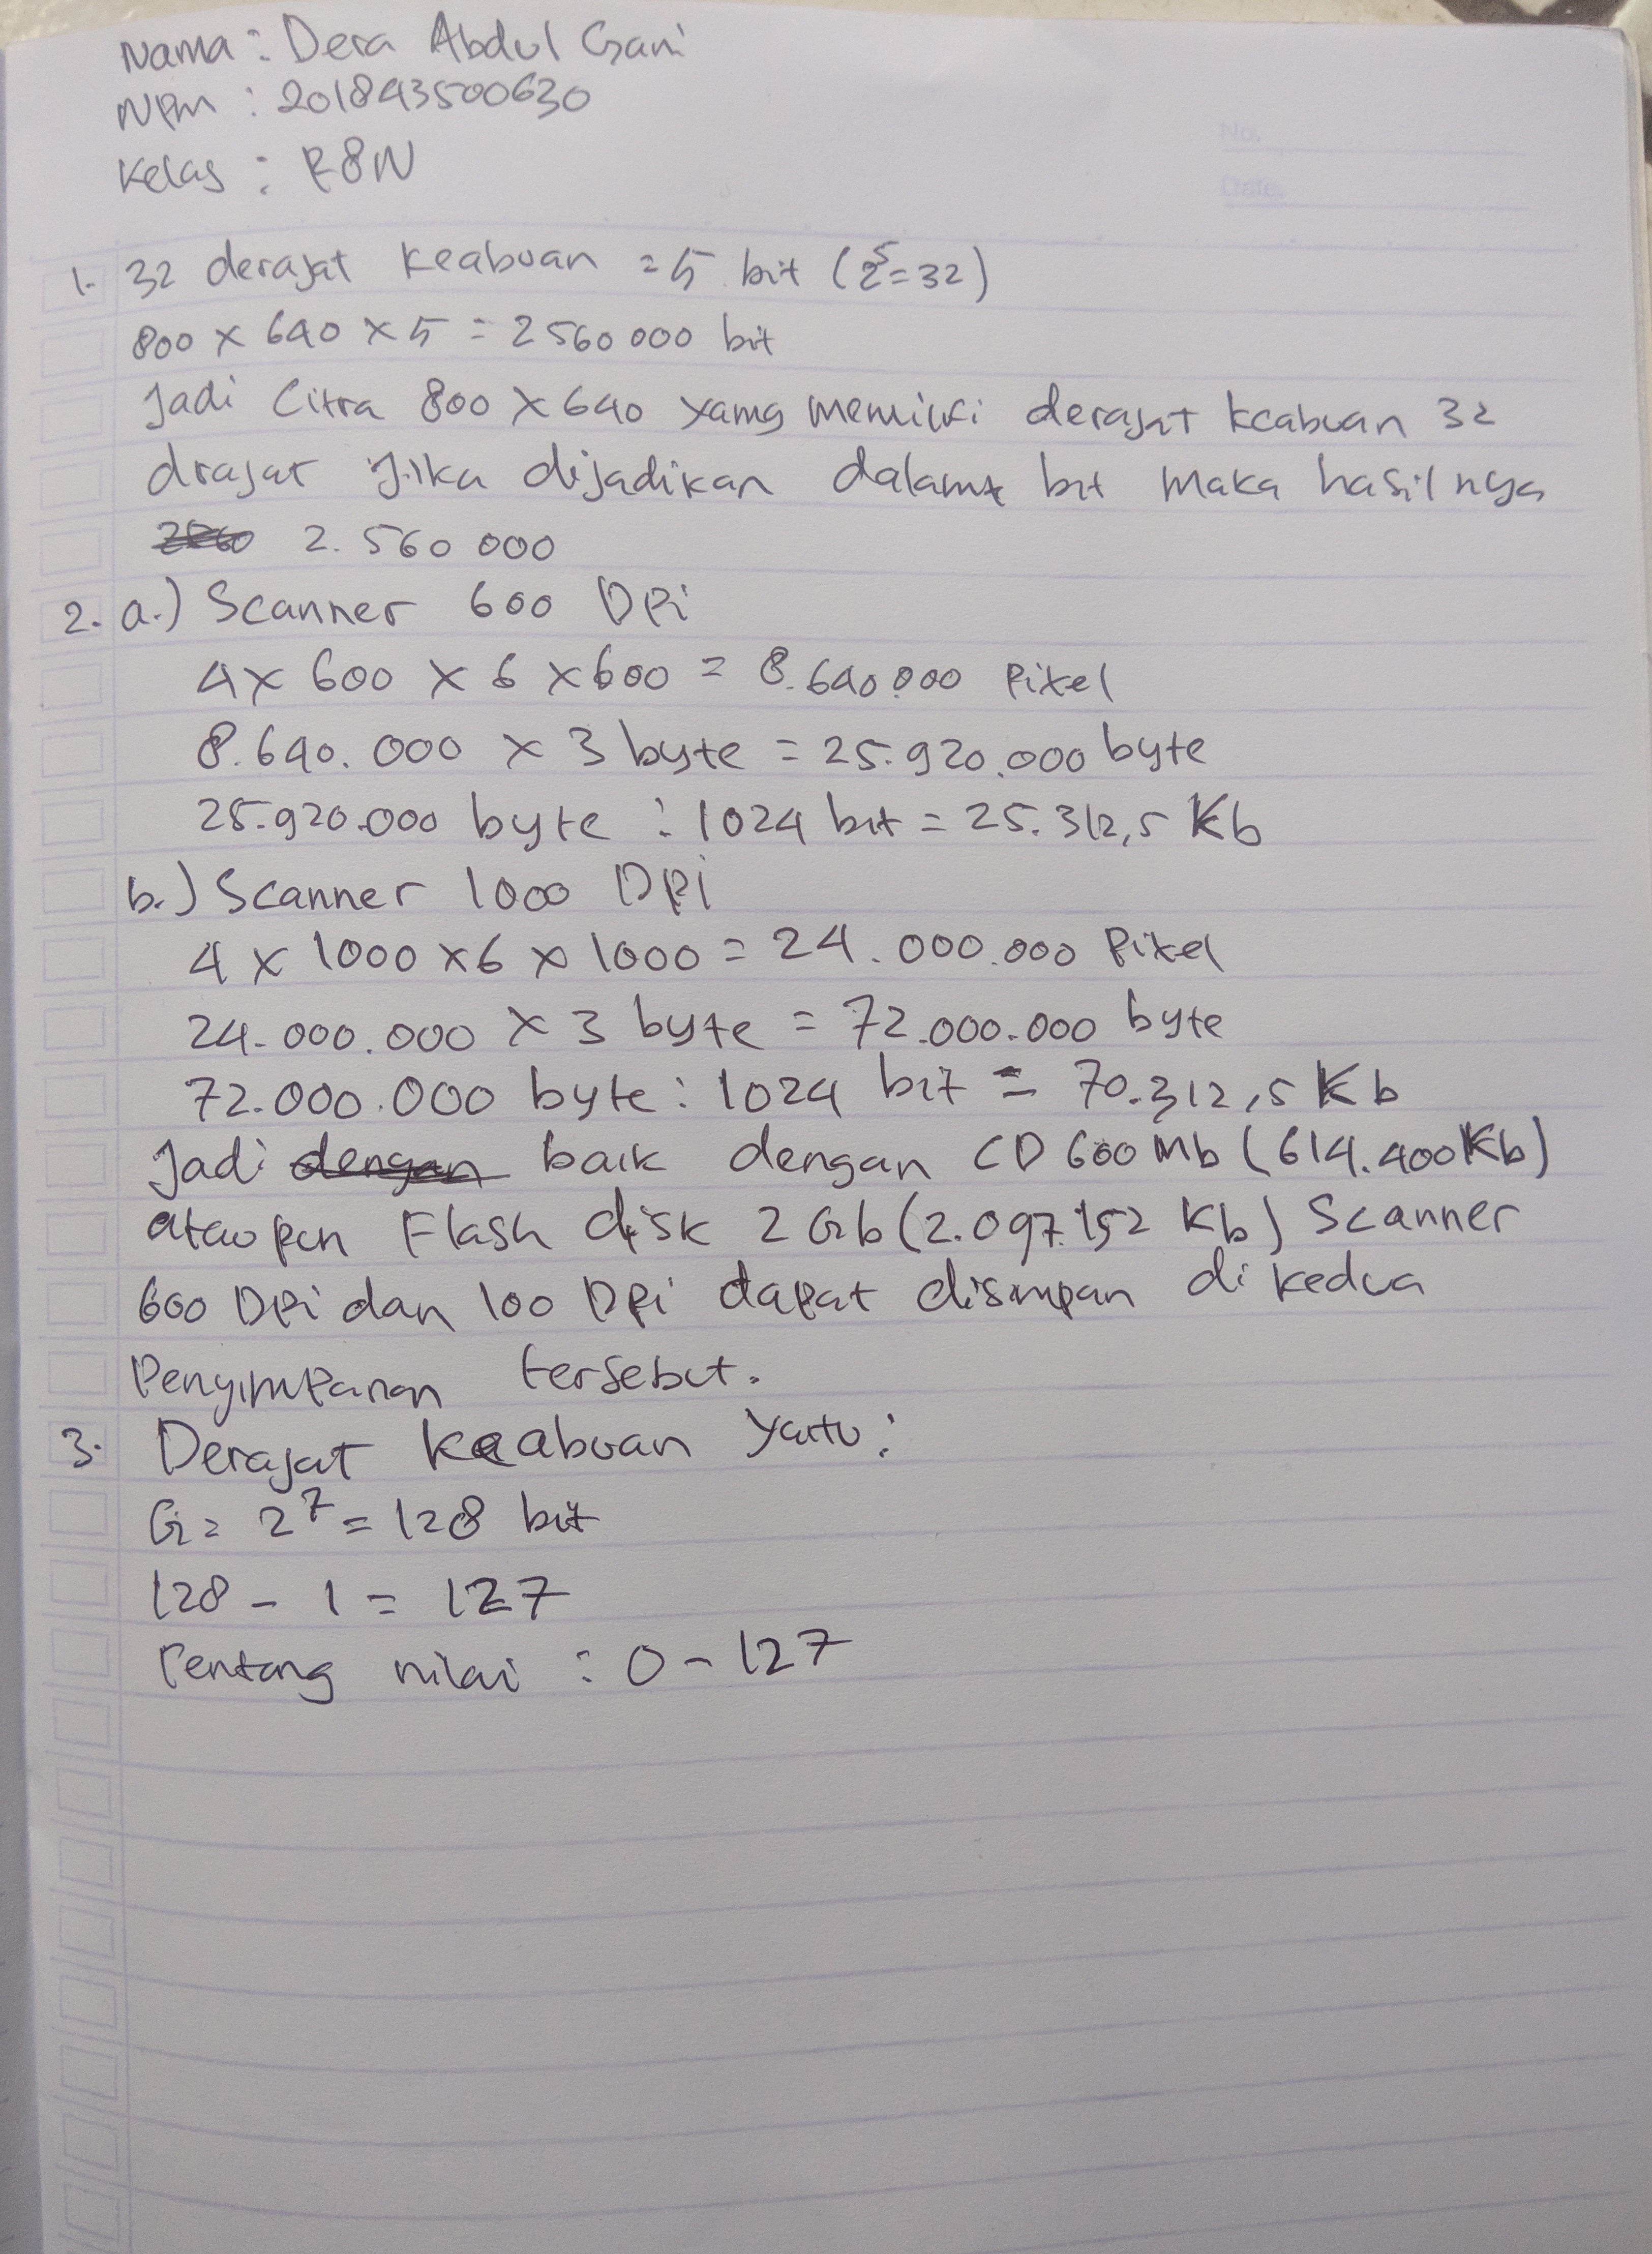 Nama : Dera Abdul Gani
NPM : 201843500630
Kelas : R8N
No.
Date.
1. 32 derajat keabuan = 5 bit (2⁵=32)
800 x 640 x 5 = 2560000 bit
Jadi Citra 800 x 640 yang memiliki derajat keabuan 32
drajat jika dijadikan dalam bit maka hasilnya
2.560 000
2. a.) Scanner 600 DPi
4 x 600 x 6 x 600 = 8.640.000 Pixel
8.640.000 x 3 byte = 25.920.000 byte
25.920.000 byte : 1024 bit = 25.312,5 Kb
b.) Scanner 1000 DPi
4 x 1000 x 6 x 1000 = 24.000.000 Pixel
24.000.000 x 3 byte = 72.000.000 byte
72.000.000 byte : 1024 bit = 70.312,5 Kb
Jadi dengan baik dengan CD 600 Mb (614.400 Kb)
ataupun Flash disk 2 Gb (2.097.152 Kb) Scanner
600 DPi dan 100 DPi dapat disimpan di kedua
Penyimpanan tersebut.
3. Derajat keabuan yaitu :
G = 2⁷ = 128 bit
128 - 1 = 127
rentang nilai : 0 - 127